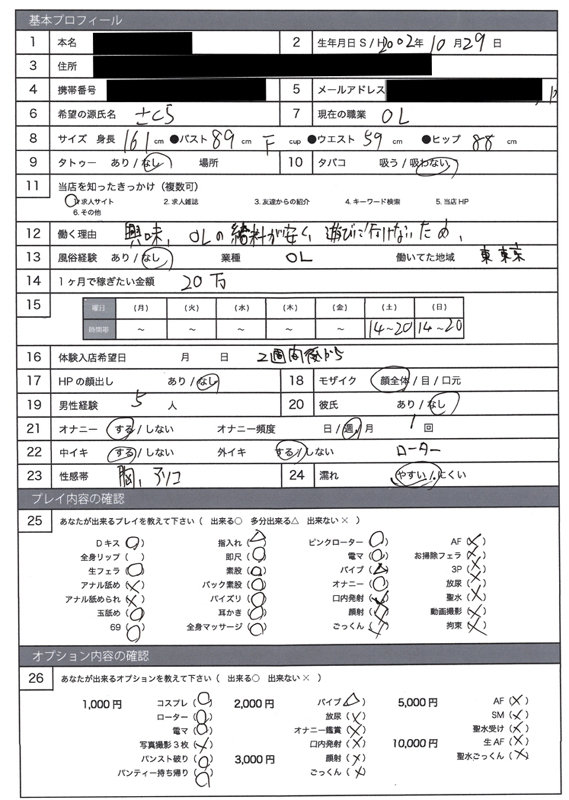 基本プロフィール
1 本名 2 生年月日 S / H 2002年 10月 29日
3 住所
4 携帯番号 5 メールアドレス
6 希望の源氏名 さくら 7 現在の職業 OL
8 サイズ 身長 161cm ●バスト 89cm F cup ●ウエスト 59cm ●ヒップ 88cm
9 タトゥー あり / なし 場所 10 タバコ 吸う / 吸わない
11 当店を知ったきっかけ(複数可)
1.求人サイト 2.求人雑誌 3.友達からの紹介 4.キーワード検索 5.当店HP
6.その他
12 働く理由 興味、OLの給料が安く、遊びに行けないため、
13 風俗経験 あり / なし 業種 OL 働いてた地域 東京
14 1ヶ月で稼ぎたい金額 20万
15 曜日 (月) (火) (水) (木) (金) (土) (日)
時間帯 ~ ~ ~ ~ ~ 14~20 14~20
16 体験入店希望日 月 日 2週間後から
17 HPの顔出し あり / なし 18 モザイク 顔全体 / 目 / 口元
19 男性経験 5人 20 彼氏 あり / なし
21 オナニー する / しない オナニー頻度 日 / 週 / 月 1回
22 中イキ する / しない 外イキ する / しない ローター
23 性感帯 胸、クリ 24 濡れ やすい / にくい
プレイ内容の確認
25 あなたが出来るプレイを教えて下さい( 出来る○ 多分出来る△ 出来ない× )
Dキス(○) 指入れ(△) ピンクローター(○) AF(×)
全身リップ( ) 即尺(○) 電マ(○) お掃除フェラ(×)
生フェラ(○) 素股(○) バイブ(△) 3P(×)
アナル舐め(×) バック素股(○) オナニー(○) 放尿(×)
アナル舐められ(×) パイズリ(○) 口内発射(×) 聖水(×)
玉舐め(○) 耳かき(○) 顔射(×) 動画撮影(×)
69(○) 全身マッサージ(○) ごっくん(×) 拘束(×)
オプション内容の確認
26 あなたが出来るオプションを教えて下さい( 出来る○ 出来ない× )
1,000円 コスプレ(○) 2,000円 バイブ(△) 5,000円 AF(×)
ローター(○) 放尿(×) SM(×)
電マ(○) オナニー鑑賞(×) 聖水受け(×)
写真撮影3枚(×) 口内発射(×) 10,000円 生AF(×)
パンスト破り(○) 3,000円 顔射(×) 聖水ごっくん(×)
パンティー持ち帰り(○) ごっくん(×)